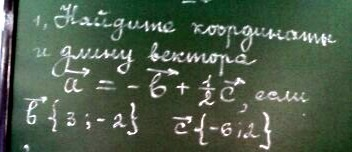 1, Найдите координаты
и длину вектора
a⃗ = - b⃗ + 1/2 c⃗, если
b⃗ {3 ; -2} c⃗ {-6 ; 2}